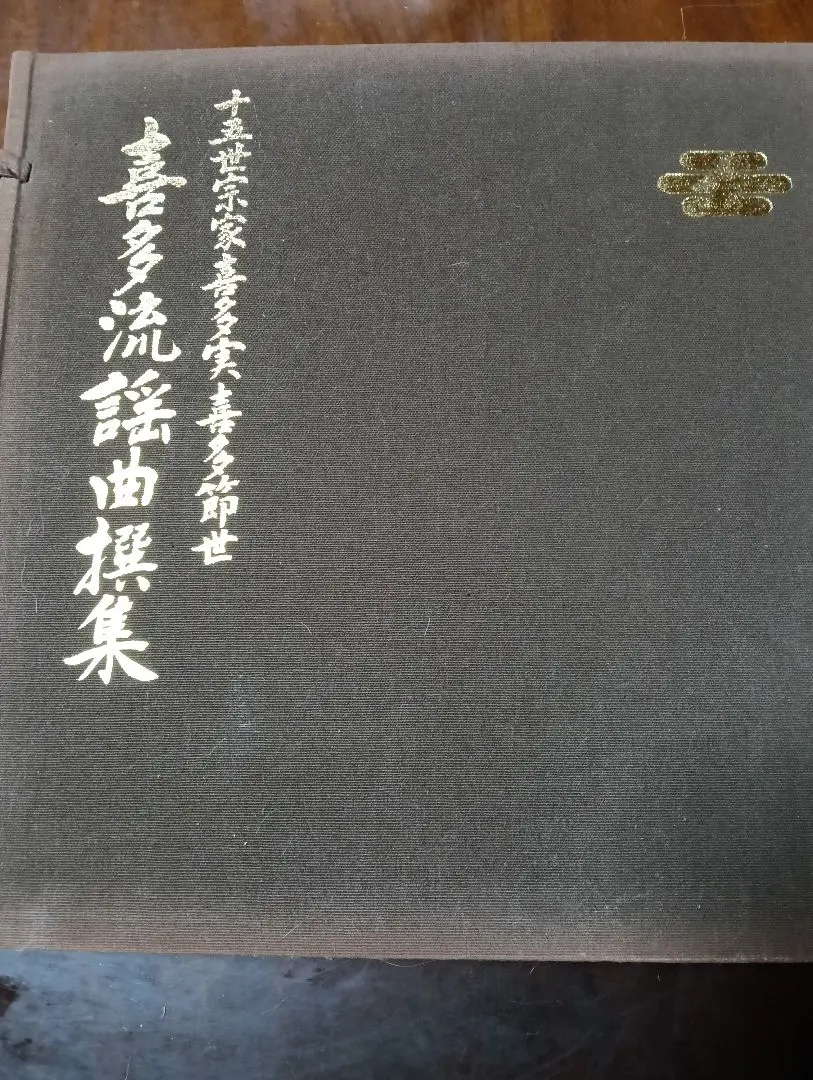 十五世宗家喜多実喜多節世
喜多流謡曲撰集